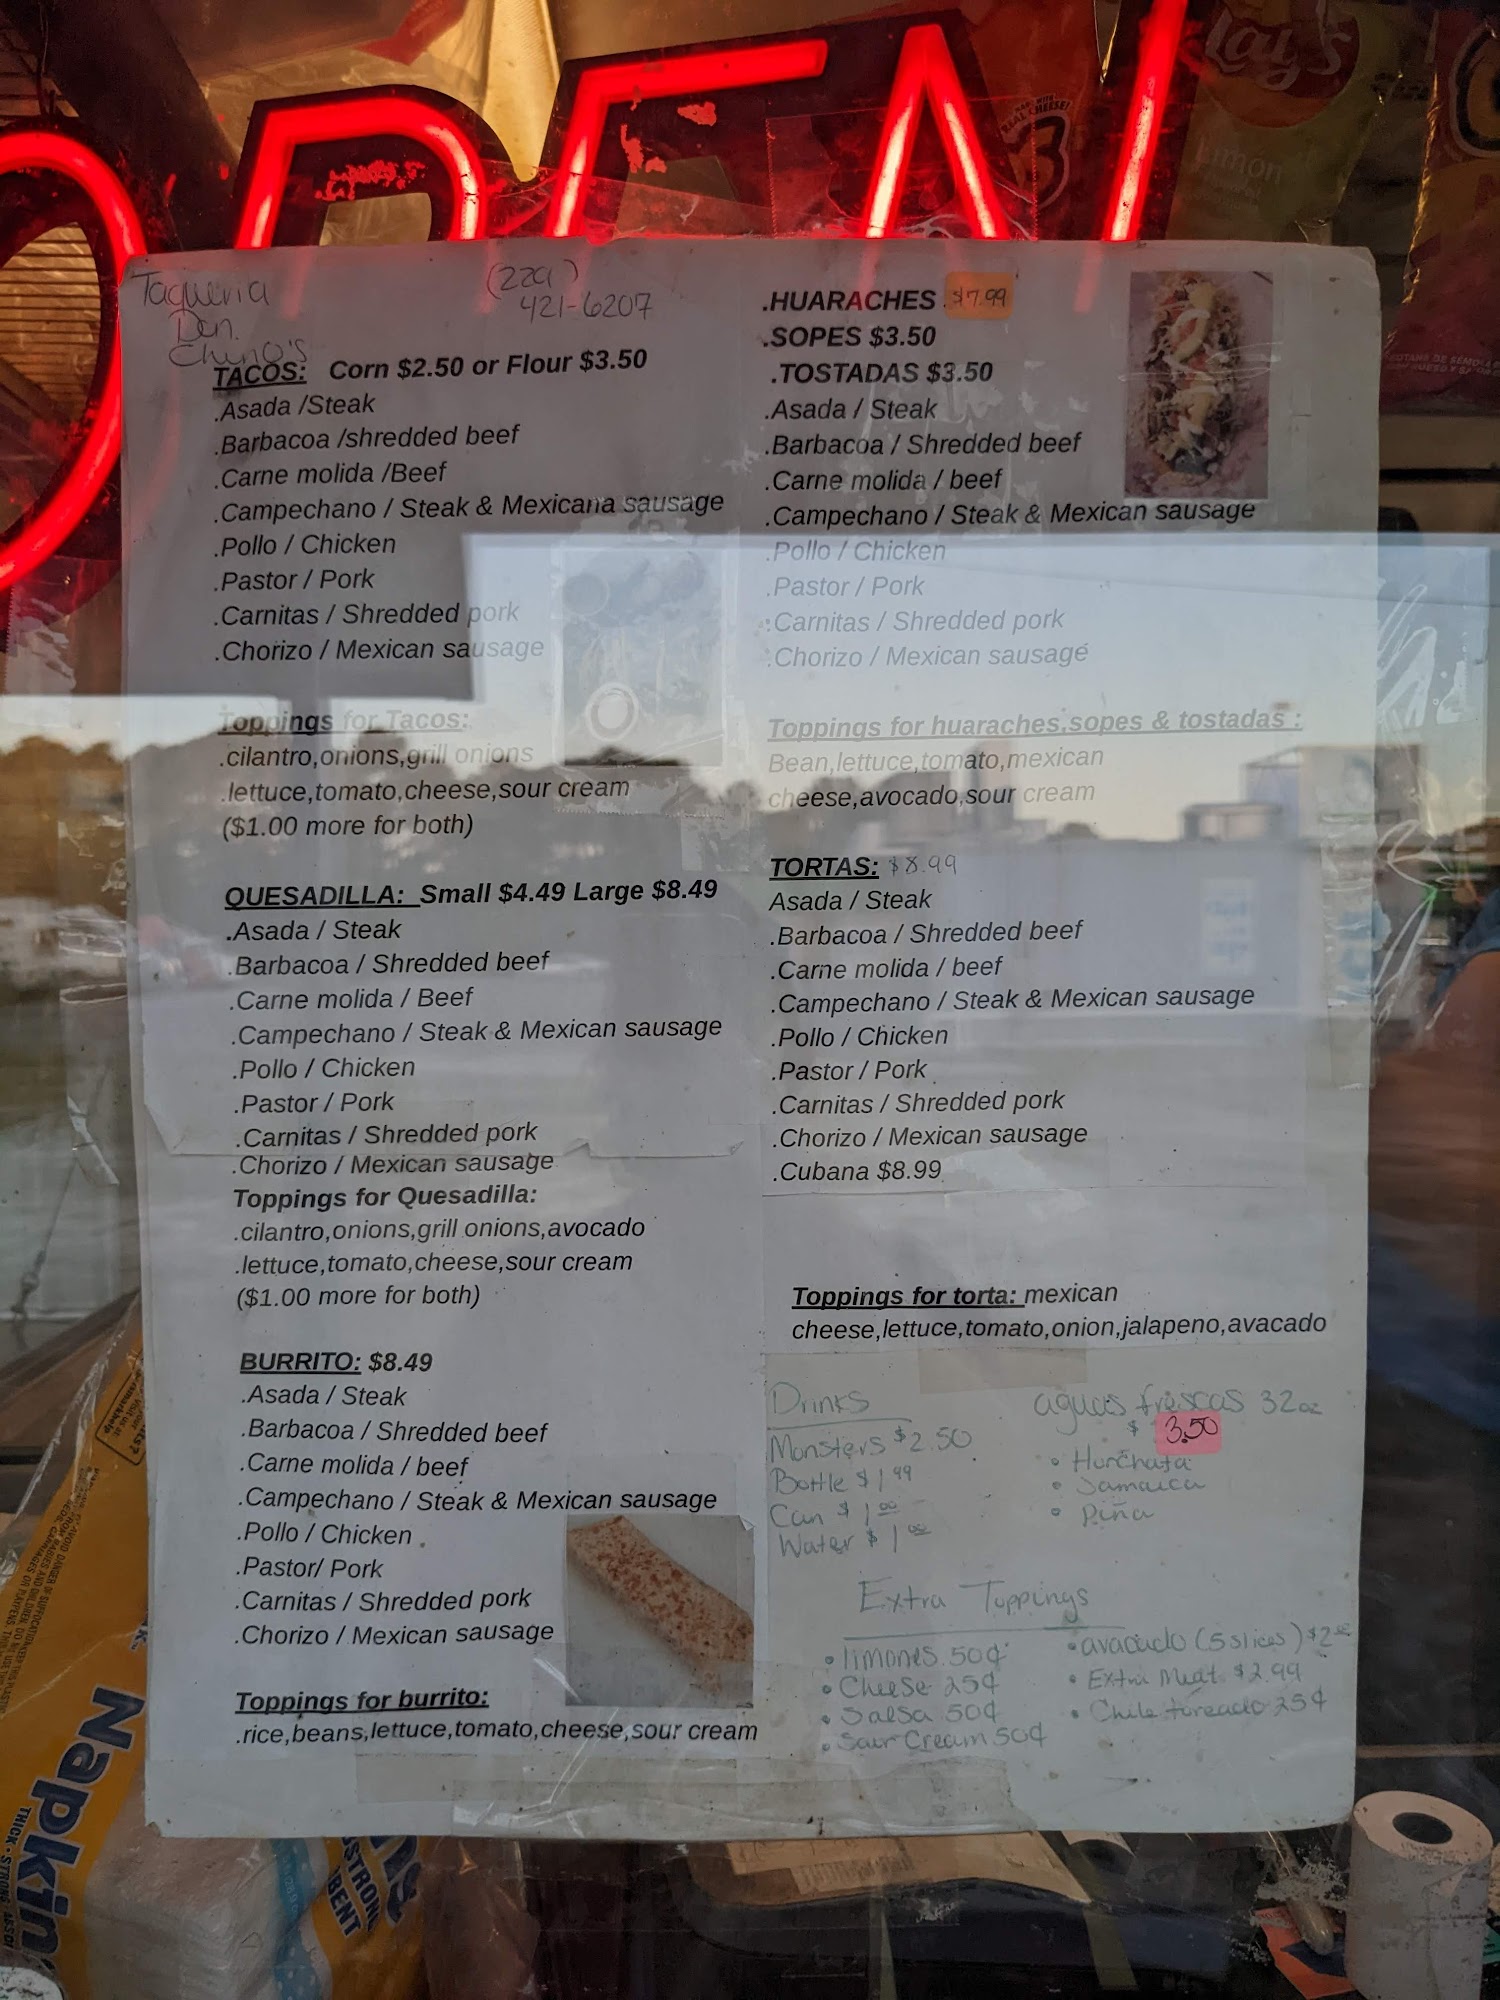 OPEN
Lay's
Limón
Taqueria
Don
Chino's
(229)
421-6207
TACOS: Corn $2.50 or Flour $3.50
.Asada /Steak
.Barbacoa /shredded beef
.Carne molida /Beef
.Campechano / Steak & Mexicana sausage
.Pollo / Chicken
.Pastor / Pork
.Carnitas / Shredded pork
.Chorizo / Mexican sausage
Toppings for Tacos:
.cilantro,onions,grill onions
.lettuce,tomato,cheese,sour cream
($1.00 more for both)
QUESADILLA: Small $4.49 Large $8.49
.Asada / Steak
.Barbacoa / Shredded beef
.Carne molida / Beef
.Campechano / Steak & Mexican sausage
.Pollo / Chicken
.Pastor / Pork
.Carnitas / Shredded pork
.Chorizo / Mexican sausage
Toppings for Quesadilla:
.cilantro,onions,grill onions,avocado
.lettuce,tomato,cheese,sour cream
($1.00 more for both)
BURRITO: $8.49
.Asada / Steak
.Barbacoa / Shredded beef
.Carne molida / beef
.Campechano / Steak & Mexican sausage
.Pollo / Chicken
.Pastor/ Pork
.Carnitas / Shredded pork
.Chorizo / Mexican sausage
Toppings for burrito:
.rice,beans,lettuce,tomato,cheese,sour cream
.HUARACHES $7.99
.SOPES $3.50
.TOSTADAS $3.50
.Asada / Steak
.Barbacoa / Shredded beef
.Carne molida / beef
.Campechano / Steak & Mexican sausage
.Pollo / Chicken
.Pastor / Pork
.Carnitas / Shredded pork
.Chorizo / Mexican sausage
Toppings for huaraches,sopes & tostadas :
Bean,lettuce,tomato,mexican
cheese,avocado,sour cream
TORTAS: $8.99
Asada / Steak
.Barbacoa / Shredded beef
.Carne molida / beef
.Campechano / Steak & Mexican sausage
.Pollo / Chicken
.Pastor / Pork
.Carnitas / Shredded pork
.Chorizo / Mexican sausage
.Cubana $8.99
Toppings for torta: mexican
cheese,lettuce,tomato,onion,jalapeno,avacado
Drinks
Monsters $2.50
Bottle $1.99
Can $1.00
Water $1.00
aguas frescas 32oz
$ 3.50
• Horchata
• Jamaica
• Piña
Extra Toppings
• limones 50¢
• Cheese 25¢
• Salsa 50¢
• Sour Cream 50¢
• avacado (5 slices) $2.00
• Extra Meat $2.99
• Chile toreado 25¢
Napkin
THICK • STRONG